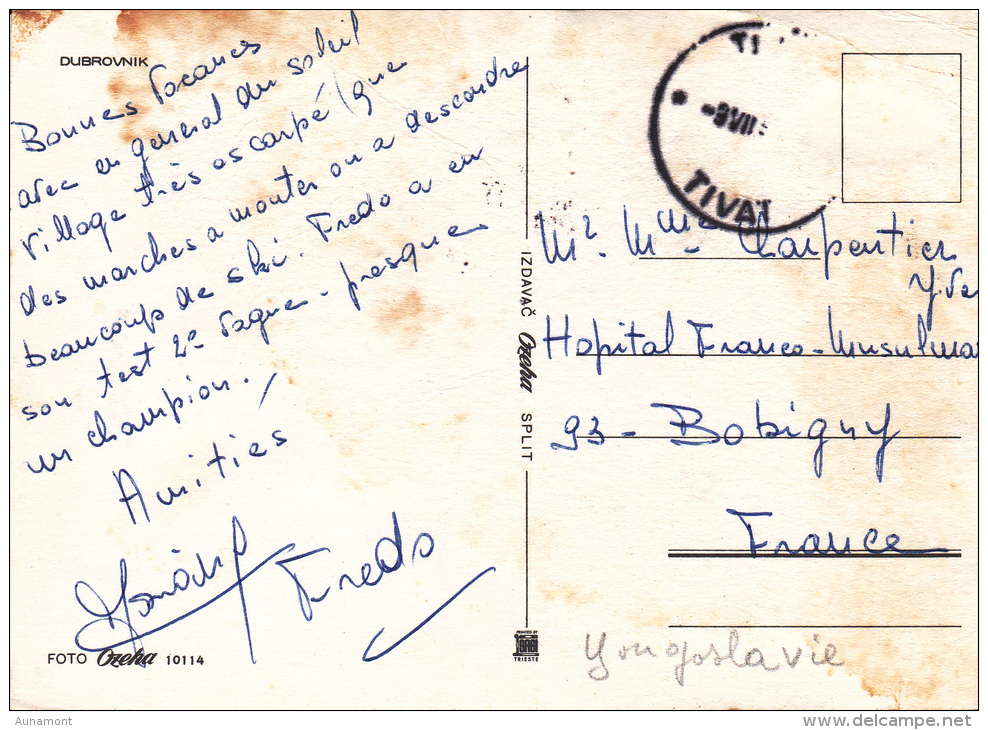 DUBROVNIK
Bonnes Vacances
avec en general du soleil
village très escarpé (que
des marches a monter ou a descendre
beaucoup de ski. Fredo a eu
son test 2e vague - presque
un champion.
Amities
Fredo
FOTO Ozeha 10114
IZDAVAČ Ozeha SPLIT
PRINTED BY
TRIESTE
TI
TIVAT
Mr. Mme Carpentier
Yve
Hopital Franco-Musulma
93 - Bobigny
France
Yougoslavie
Aunamont
delcampe.net